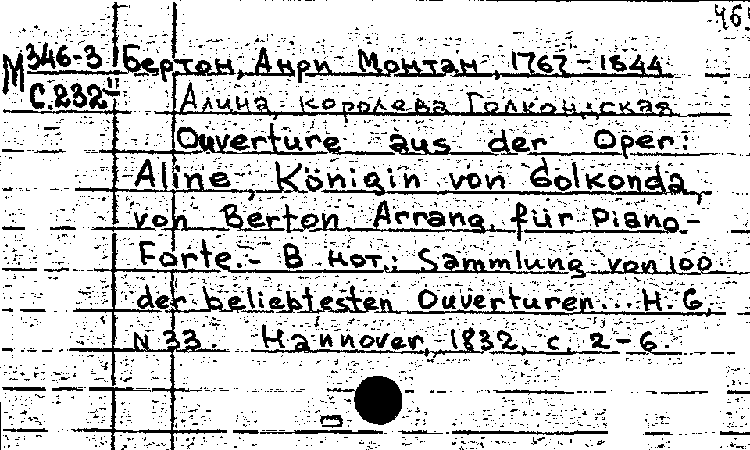 461
М 346-3 Бертон, Анри Монтан, 1767-1844
С.232" Алина, королева Голкондская
Ouverture aus der Oper:
Aline, Königin von Golkonda,
von Berton Arrang. für Piano-
Forte.- В нот.: Sammlung von 100
der beliebtesten Ouverturen... H. 6,
N 33. Hannover, 1832, с. 2-6.